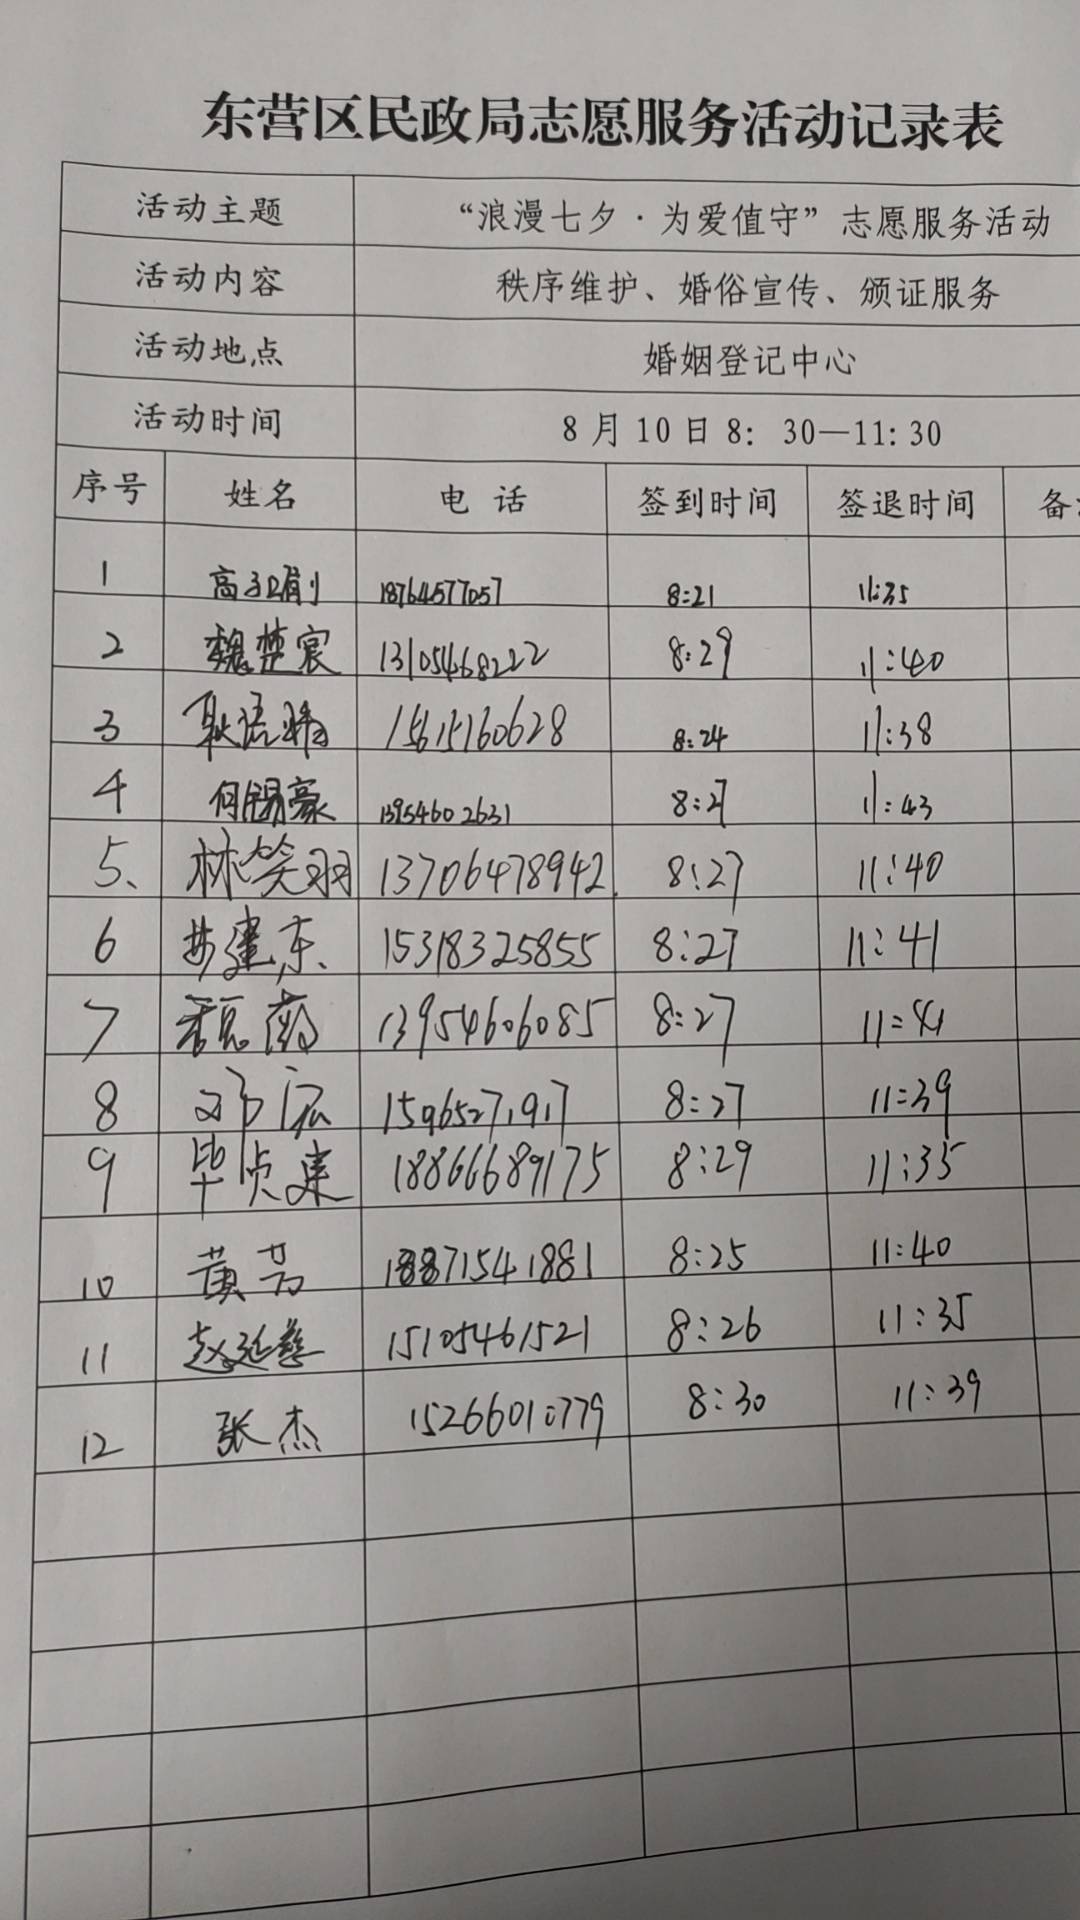 东营区民政局志愿服务活动记录表
活动主题 “浪漫七夕·为爱值守”志愿服务活动
活动内容 秩序维护、婚俗宣传、颁证服务
活动地点 婚姻登记中心
活动时间 8月10日8：30—11:30
序号 姓名 电 话 签到时间 签退时间 备
1 18764577057 8:21 11:35
2 魏楚宸 13105468222 8:29 11:40
3 耿语 15615160628 8:24 11:38
4 何锡豪 13954602631 8:27 11:43
5、 林笑羽 13706478942 8:27 11:40
6 步建东 15318325855 8:27 11:41
7 13954606085 8:27 11:41
8 邓宏 15965271917 8:27 11:39
9 毕贞 18866689175 8:29 11:35
10 黄芳 18871541881 8:25 11:40
11 赵延慈 15105461521 8:26 11:35
12 张杰 15266010779 8:30 11:39